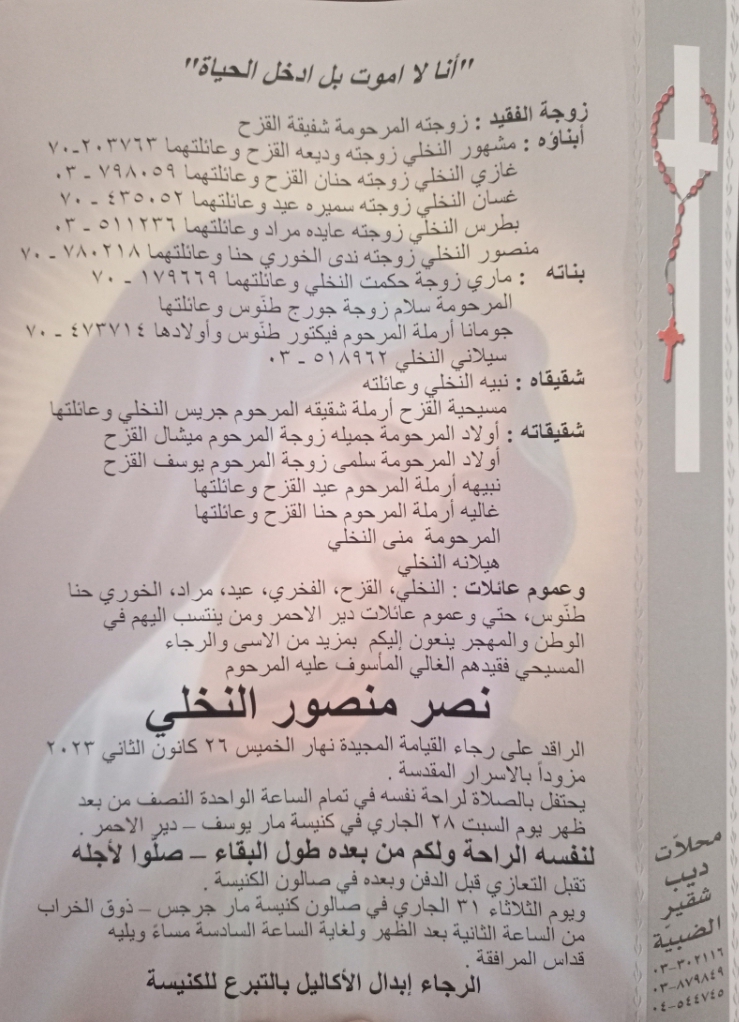 "أنا لا اموت بل ادخل الحياة"
زوجة الفقيد : زوجته المرحومة شفيقة القزح
أبناؤه : مشهور النخلي زوجته وديعه القزح وعائلتهما ٢٠٣٧٦٣-٧٠
غازي النخلي زوجته حنان القزح وعائلتهما ٧٩٨٠٥٩ - ٠٣
غسان النخلي زوجته سميره عيد وعائلتهما ٤٣٥٠٥٢ - ٧٠
بطرس النخلي زوجته عايده مراد وعائلتهما ٥١١٢٣٦ - ٠٣
منصور النخلي زوجته ندى الخوري حنا وعائلتهما ٧٨٠٢١٨ - ٧٠
بناته : ماري زوجة حكمت النخلي وعائلتهما ١٧٩٦٦٩ - ٧٠
المرحومة سلام زوجة جورج طنّوس وعائلتها
جومانا أرملة المرحوم فيكتور طنّوس وأولادها ٤٧٣٧١٤ - ٧٠
سيلاني النخلي ٥١٨٩٦٢ - ٠٣
شقيقاه : نبيه النخلي وعائلته
مسيحية القزح أرملة شقيقه المرحوم جريس النخلي وعائلتها
شقيقاته : أولاد المرحومة جميله زوجة المرحوم ميشال القزح
أولاد المرحومة سلمى زوجة المرحوم يوسف القزح
نبيهه أرملة المرحوم عيد القزح وعائلتها
غاليه أرملة المرحوم حنا القزح وعائلتها
المرحومة منى النخلي
هيلانه النخلي
وعموم عائلات : النخلي، القزح، الفخري، عيد، مراد، الخوري حنا
طنّوس، حتي وعموم عائلات دير الاحمر ومن ينتسب اليهم في
الوطن والمهجر ينعون إليكم بمزيد من الاسى والرجاء
المسيحي فقيدهم الغالي المأسوف عليه المرحوم
نصر منصور النخلي
الراقد على رجاء القيامة المجيدة نهار الخميس ٢٦ كانون الثاني ٢٠٢٣
مزوداً بالاسرار المقدسة .
يحتفل بالصلاة لراحة نفسه في تمام الساعة الواحدة النصف من بعد
ظهر يوم السبت ٢٨ الجاري في كنيسة مار يوسف – دير الاحمر .
لنفسه الراحة ولكم من بعده طول البقاء – صلّوا لأجله
تقبل التعازي قبل الدفن وبعده في صالون الكنيسة .
ويوم الثلاثاء ٣١ الجاري في صالون كنيسة مار جرجس – ذوق الخراب
من الساعة الثانية بعد الظهر ولغاية الساعة السادسة مساءً ويليه
قداس المرافقة .
الرجاء إبدال الأكاليل بالتبرع للكنيسة
محلات
ديب
شقير
الضبيّة
٠٣-٣٠٢١١٦
٠٣-٨٧٩٨٤٩
٠٤-٥٤٤٧٤٥